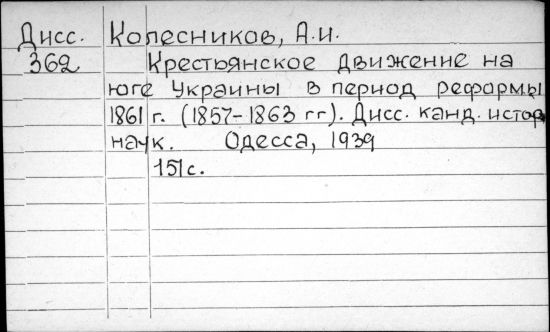 Дисс. Колесников, А.И.
362 Крестьянское движение на
юге Украины в период реформы
1861 г. (1857-1863 гг). Дисс. канд. истор.
наук. Одесса, 1939
151с.